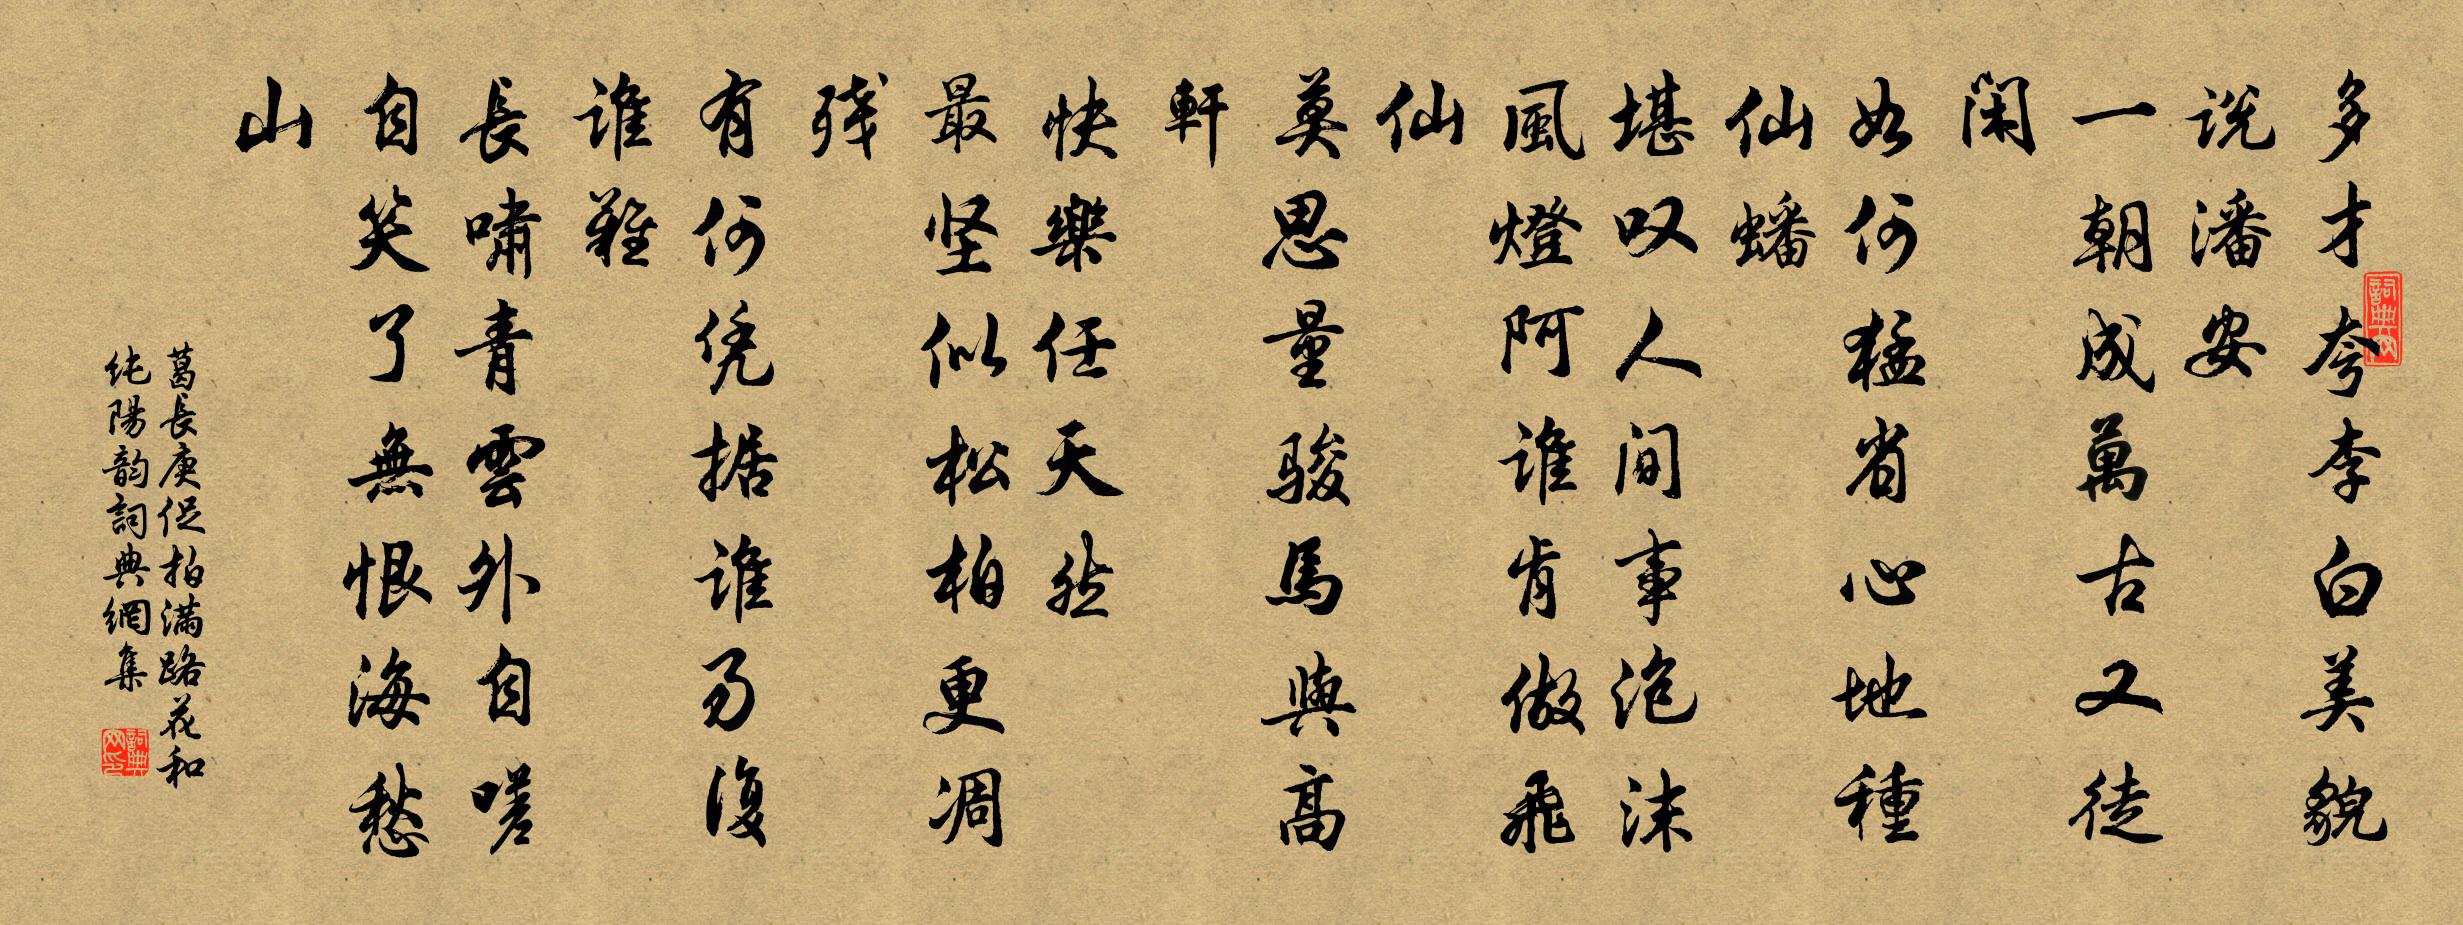 多才夸李白美貌
说潘安
一朝成萬古又徒
闲
如何猛省心地種
仙蟠
堪叹人间事泡沫
風燈阿谁肯做飛
仙
莫思量骏馬與高
軒
快樂任天然
最坚似松柏更凋
残
有何凭据谁易復
谁難
長啸青雲外自嗟
自笑了無恨海愁
山
葛長庚促拍满路花和
纯陽韵詞典網集
詞典网
詞典网印